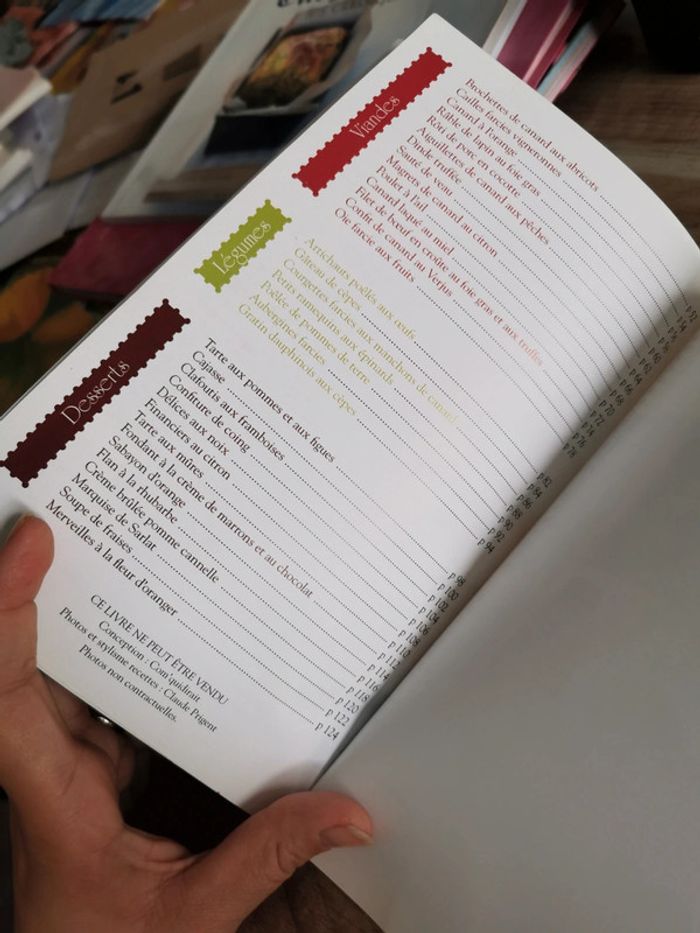 Viandes
Brochettes de canard aux abricots p 52
Cailles farcies vigneronnes p 54
Canard à l'orange p 56
Râble de lapin au foie gras p 58
Rôti de porc en cocotte p 60
Aiguillettes de canard aux pêches p 62
Dinde truffée p 64
Sauté de veau p 66
Magrets de canard au citron p 68
Poulet à l'ail p 70
Canard laqué au miel p 72
Filet de bœuf en croûte au foie gras et aux truffes p 74
Confit de canard au Verjus p 76
Oie farcie aux fruits p 78
Légumes
Artichauts poêlés aux œufs p 82
Gâteau de cèpes p 84
Courgettes farcies aux manchons de canard p 86
Petits ramequins aux épinards p 88
Poêlée de pommes de terre p 90
Aubergines farcies p 92
Gratin dauphinois aux cèpes p 94
Desserts
Tarte aux pommes et aux figues p 98
Cajasse p 100
Clafoutis aux framboises p 102
Confiture de coing p 104
Délices aux noix p 106
Financiers au citron p 108
Tarte aux mûres p 110
Fondant à la crème de marrons et au chocolat p 112
Sabayon d'orange p 114
Flan à la rhubarbe p 116
Crème brûlée pomme cannelle p 118
Marquise de Sarlat p 120
Soupe de fraises p 122
Merveilles à la fleur d'oranger p 124
CE LIVRE NE PEUT ÊTRE VENDU
Conception : Com'quidirait
Photos et stylisme recettes : Claude Prigent
Photos non contractuelles.